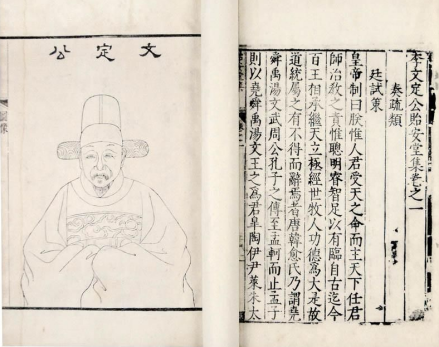 李文定公貽安堂集卷之一
奏疏類
廷試策
皇帝制曰朕惟人君受天之命而主天下任君
師治教之責惟聰明睿智足以有臨自古迄今
百王相承繼天立極經世牧人功德爲大是故
道統屬之有不得而辭焉者唐韓愈氏乃謂堯
舜禹湯文武周公孔子之傳至孟軻而止孟子
則以堯舜禹湯文王之爲君皋陶伊尹萊朱太
文定公